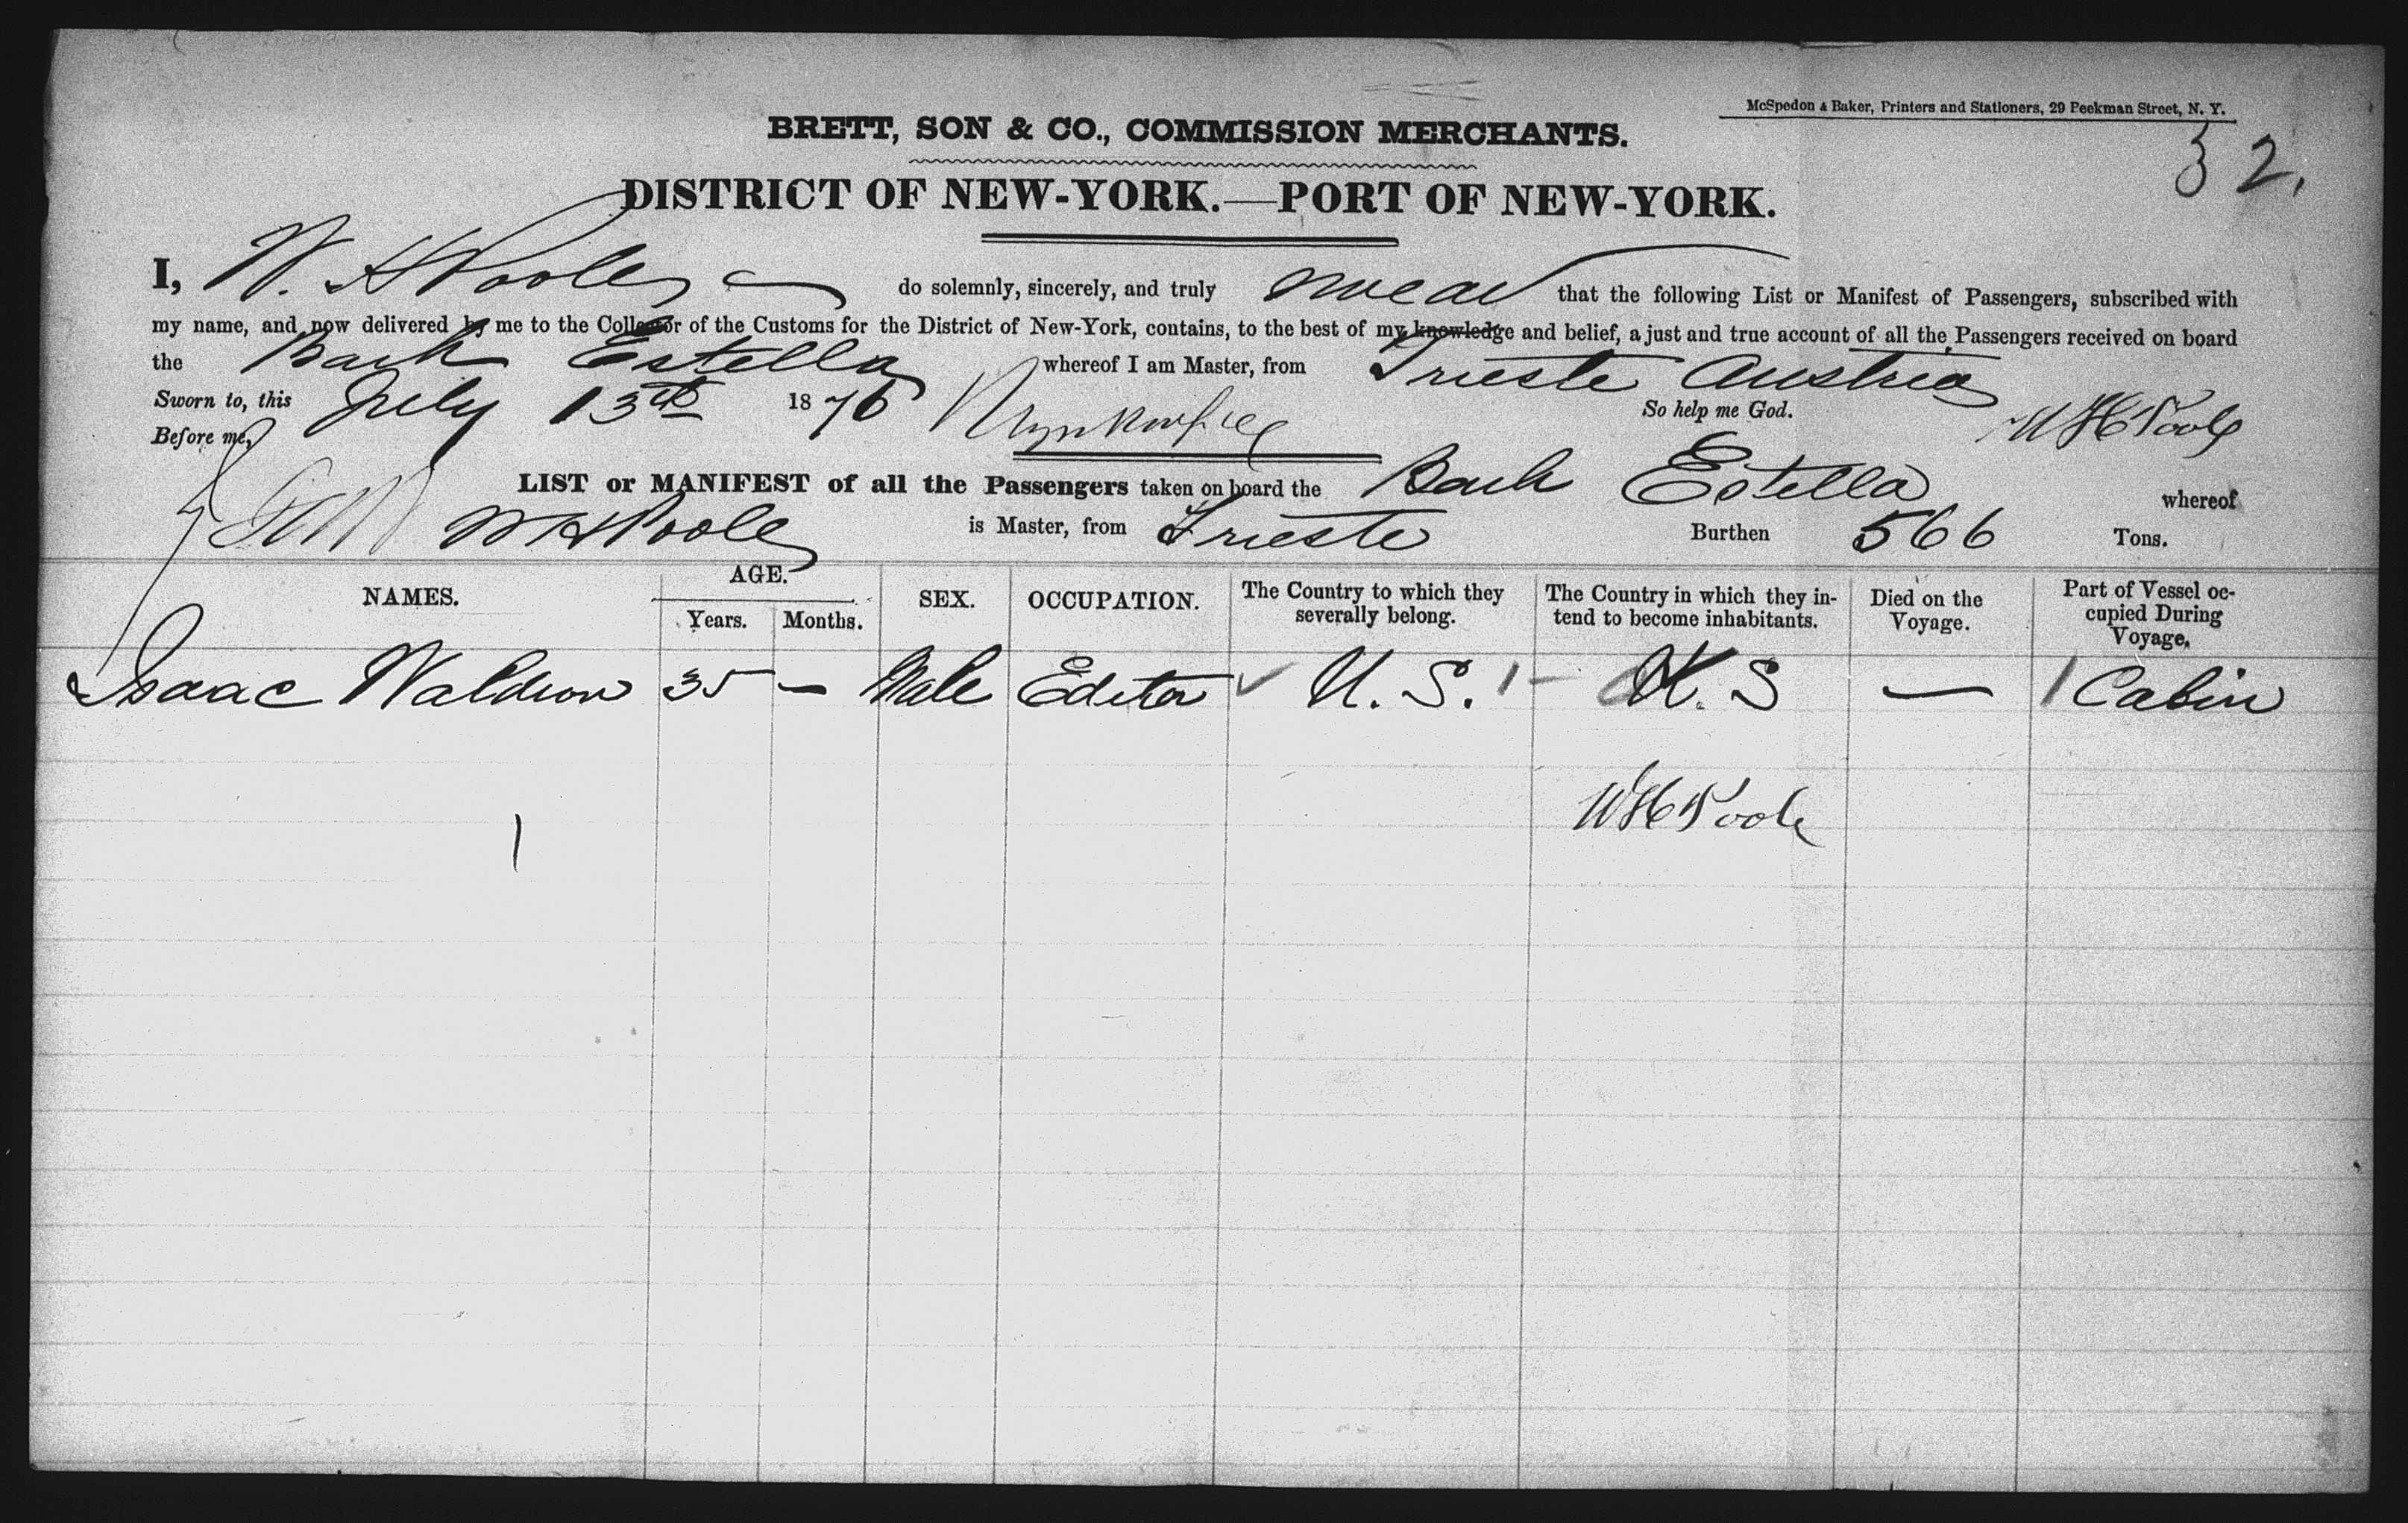 McSpedon & Baker, Printers and Stationers, 29 Beekman Street, N. Y.
BRETT, SON & CO., COMMISSION MERCHANTS.
32.
DISTRICT OF NEW-YORK.—PORT OF NEW-YORK.
I, W. H Poole do solemnly, sincerely, and truly swear that the following List or Manifest of Passengers, subscribed with
my name, and now delivered by me to the Collector of the Customs for the District of New-York, contains, to the best of my knowledge and belief, a just and true account of all the Passengers received on board
the Bark Estella whereof I am Master, from Trieste Austria
Sworn to, this July 13th 1876 So help me God. W H Poole
Before me,
LIST or MANIFEST of all the Passengers taken on board the Bark Estella whereof
W H Poole is Master, from Trieste Burthen 566 Tons.
NAMES. AGE. Years. Months. SEX. OCCUPATION. The Country to which they severally belong. The Country in which they intend to become inhabitants. Died on the Voyage. Part of Vessel occupied During Voyage.
Isaac Waldron 35 — Male Editor ✓ U. S. 1 - U. S — / Cabin
W H Poole
1